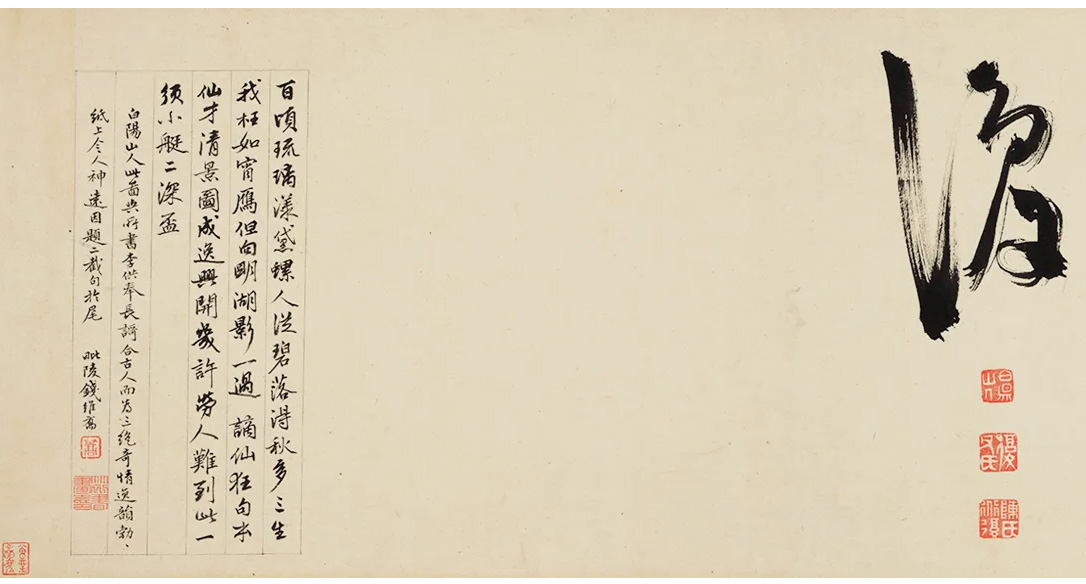 復
白陽山人
復父氏
陳氏道復
百頃琉璃漾黛螺人從碧落得秋多三生
我枉如宵鴈但向明湖影一過 謫仙狂句本
仙才清景圖成逸興開幾許勞人難到此一
須小艇二深盃
白陽山人此圖與所書李供奉長謌合古人而為三絕奇情逸韻勃、
紙上令人神遠因題二截句於尾 毗陵錢維喬